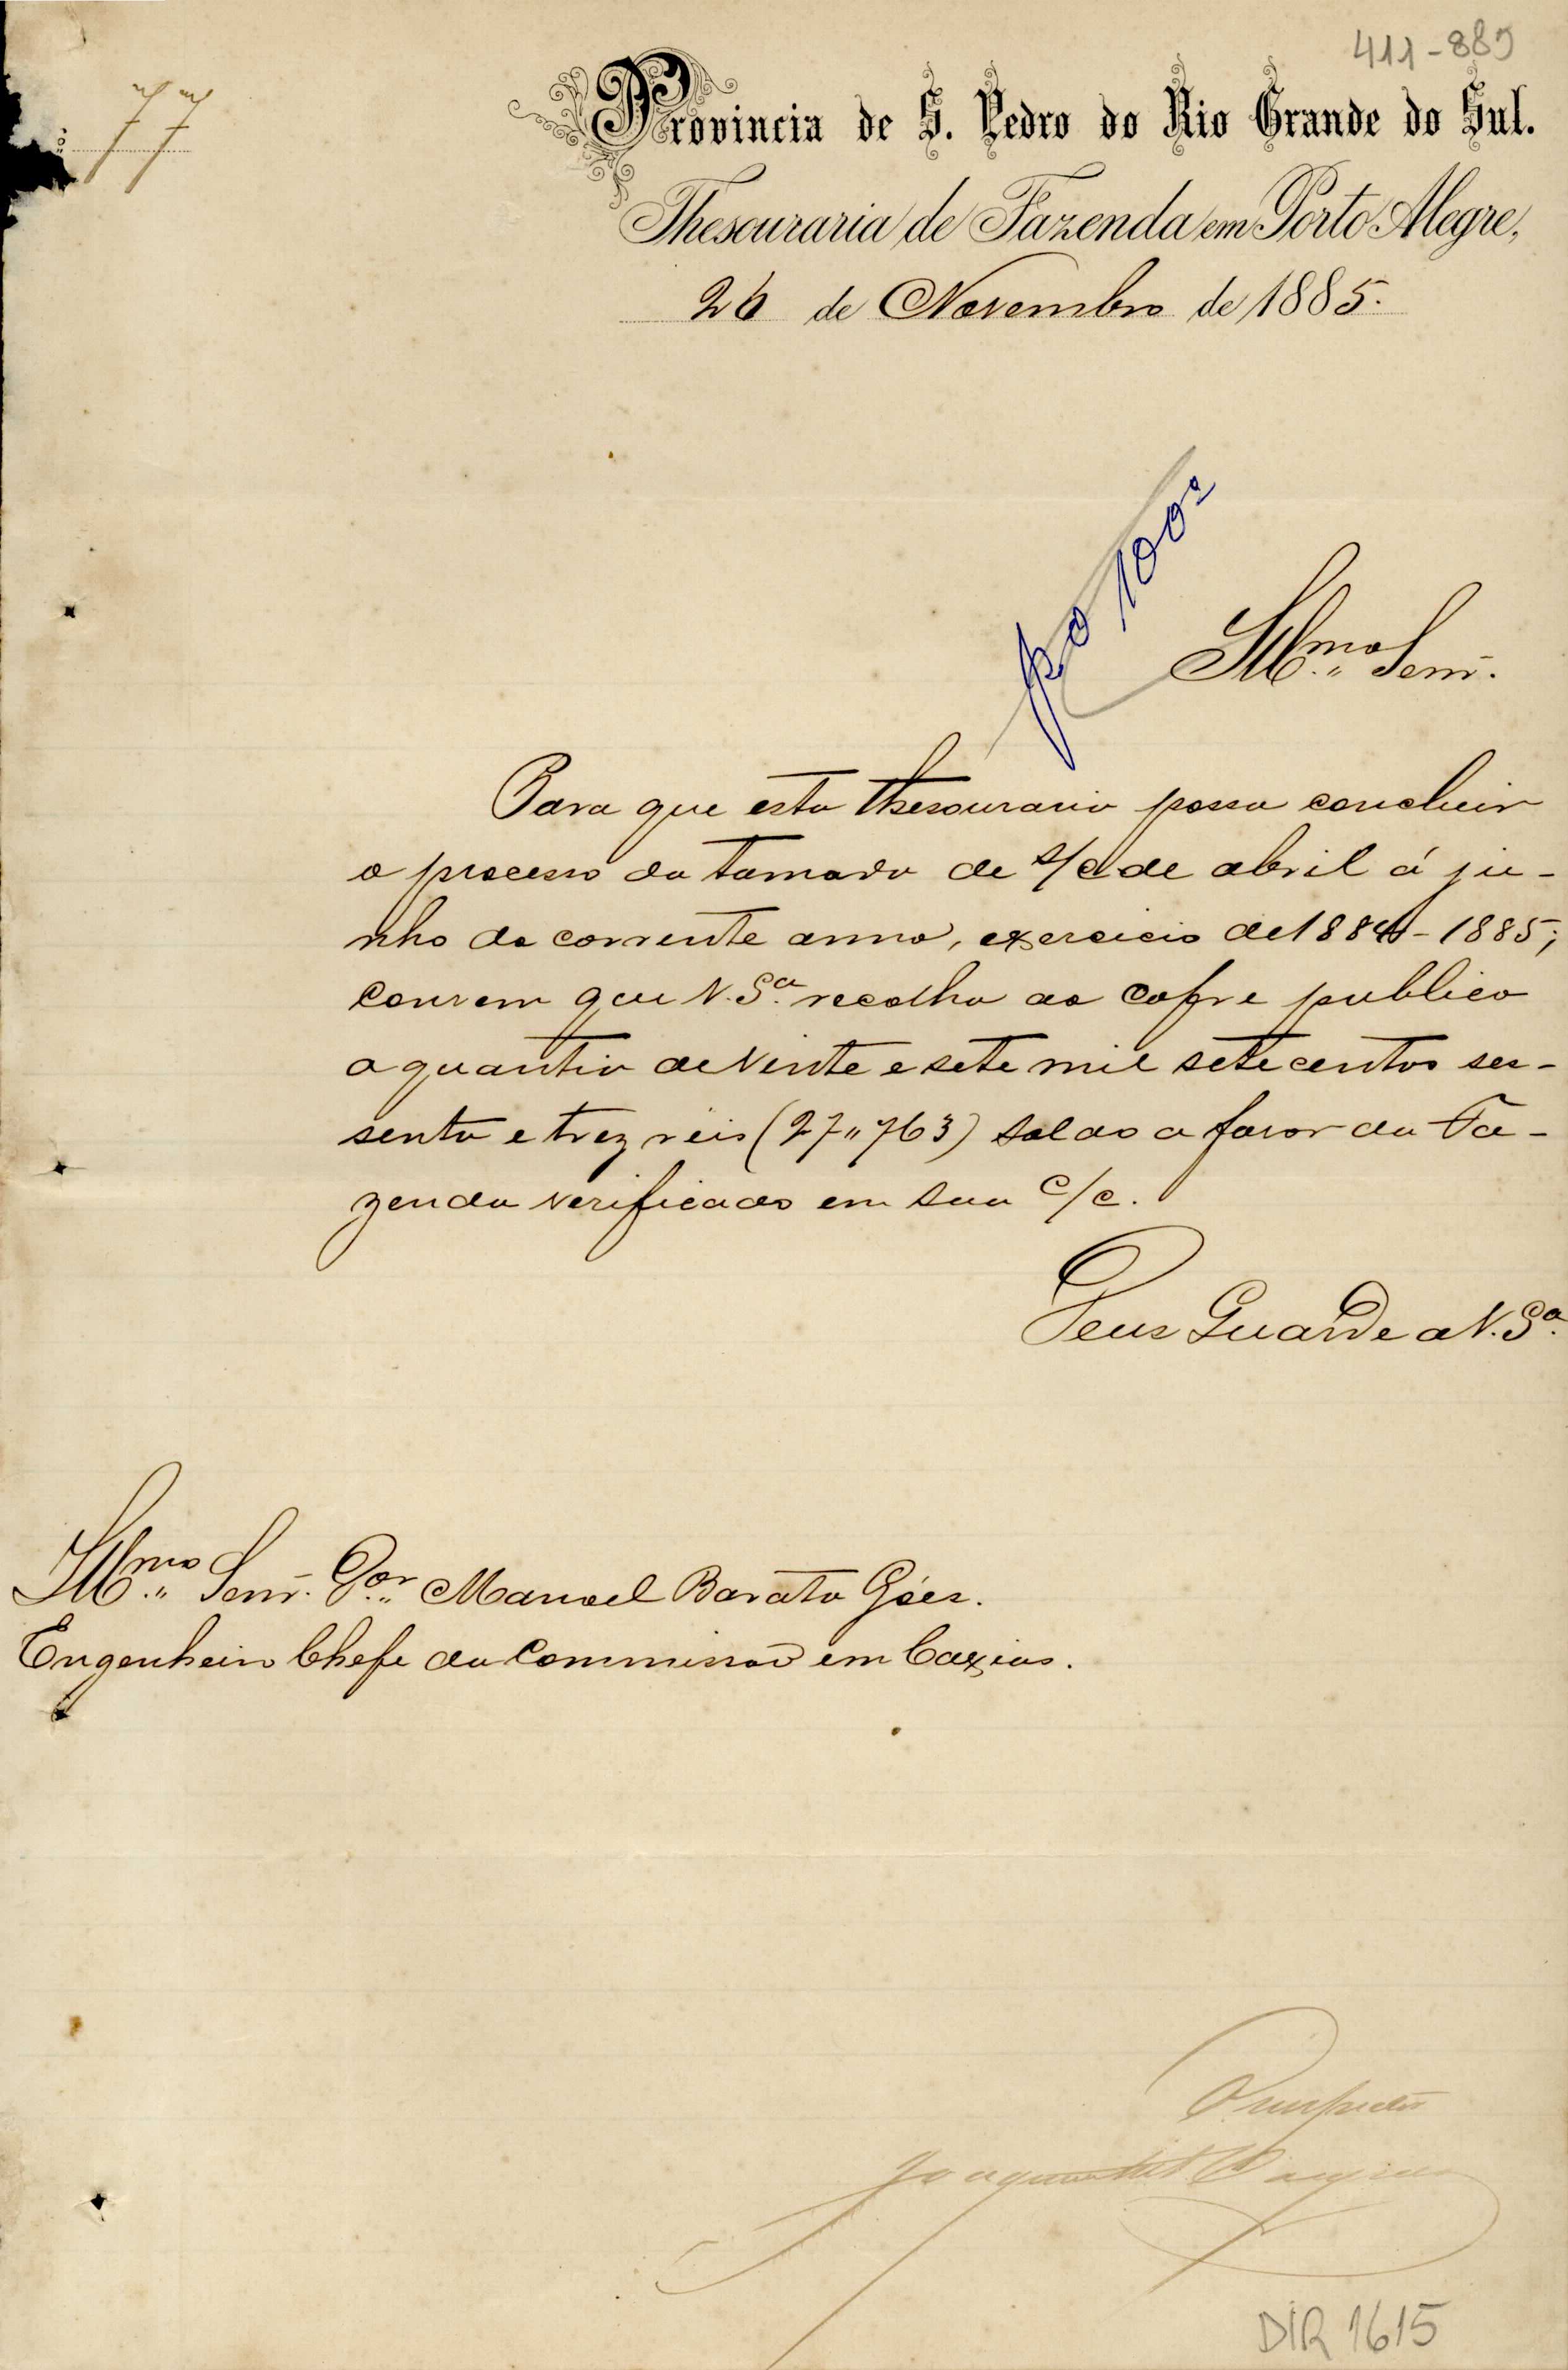 411-885
77
Provincia de S. Pedro do Rio Grande do Sul.
Thesouraria de Fazenda em Porto Alegre,
26 de Novembro de 1885.
Illmo. Senr.
Para que esta thesouraria possa concluir
o processo da tomada de c/c de abril á ju-
nho do corrente anno, exercicio de 1884-1885;
convem que V. Sa. recolha ao cofre publico
a quantia de vinte e sete mil sete centos ses-
senta e trez réis (27"763) saldo a favor da Fa-
zenda verificado em sua c/c.
Deus Guarde a V. Sa.
Illmo. Senr. Dor. Manoel Barata Góes.
Engenheiro Chefe da Commissão em Caxias.
O Inspector
DIR 1615